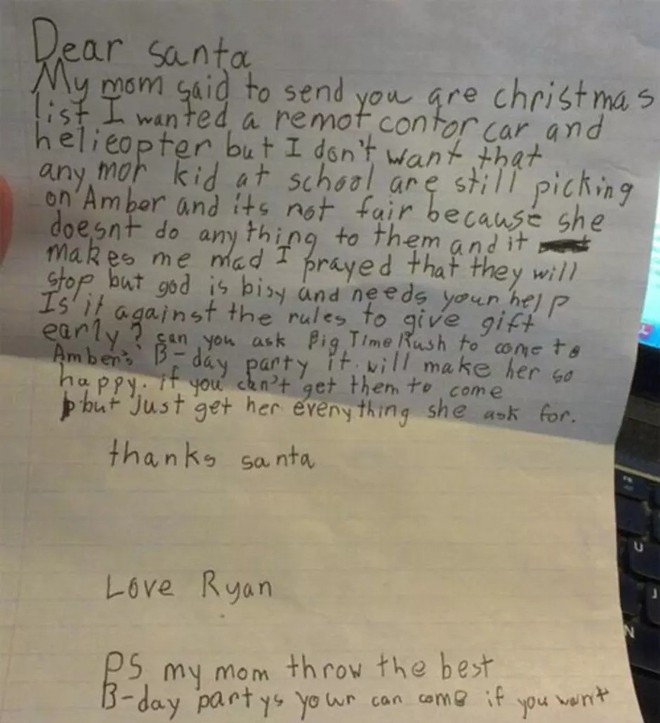 Dear santa
My mom said to send you are christmas
list I wanted a remot contor car and
helicopter but I don't want that
any mor kid at school are still picking
on Amber and its not fair because she
doesnt do any thing to them and it
makes me mad I prayed that they will
stop but god is bisy and needs your help
Is it against the rules to give gift
early? can you ask Big Time Rush to come to
Amber's B-day party it will make her so
happy. if you can't get them to come
but just get her everything she ask for.
thanks santa
Love Ryan
PS my mom throw the best
B-day partys your can come if you want
U
J
N